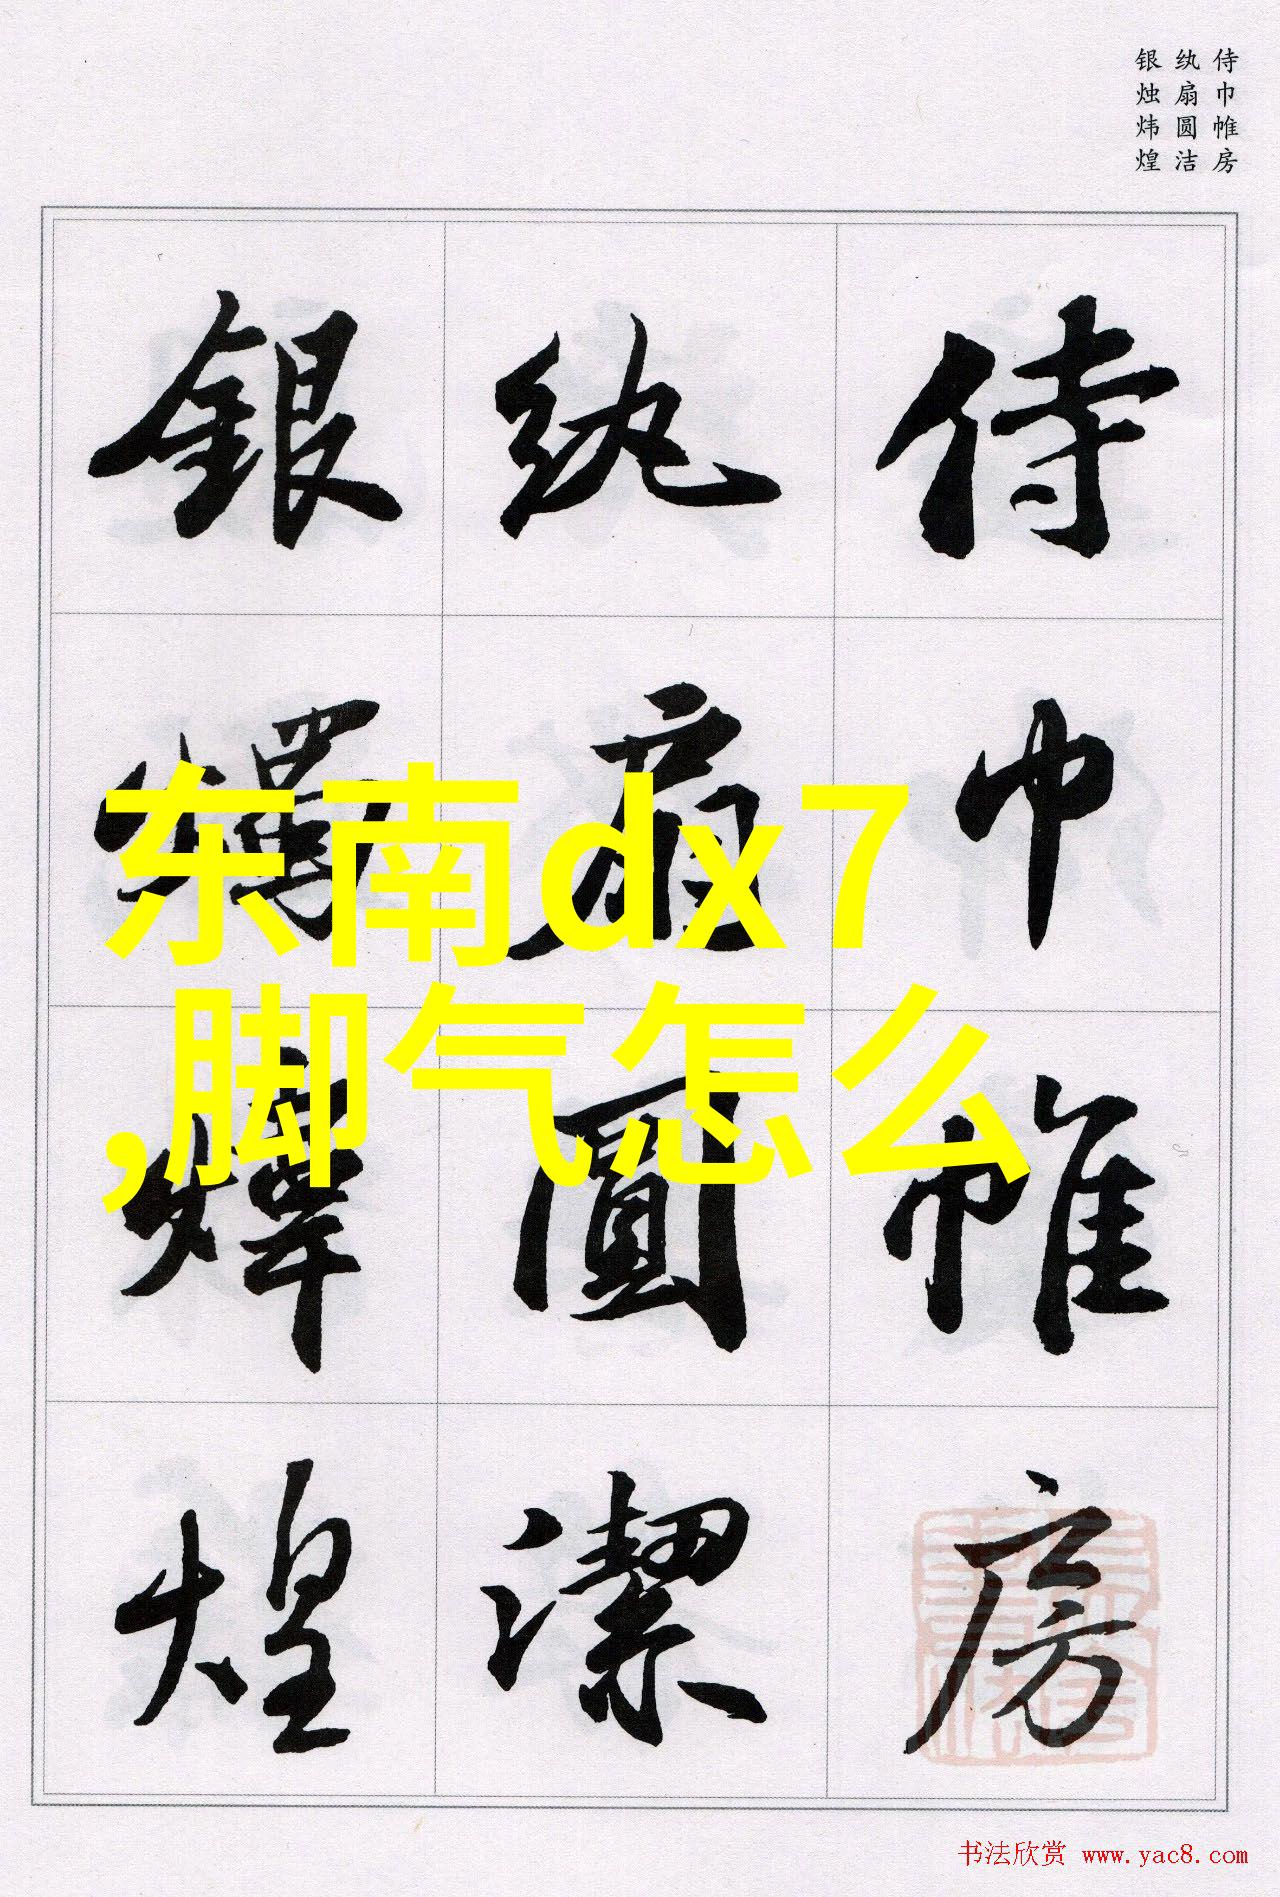 侍巾帷房
纨扇圆洁
银烛炜煌
侍巾帷房
纨扇圓潔
銀燭煒煌
东南dx7
,脚气怎么
书法欣赏 www.yac8.com